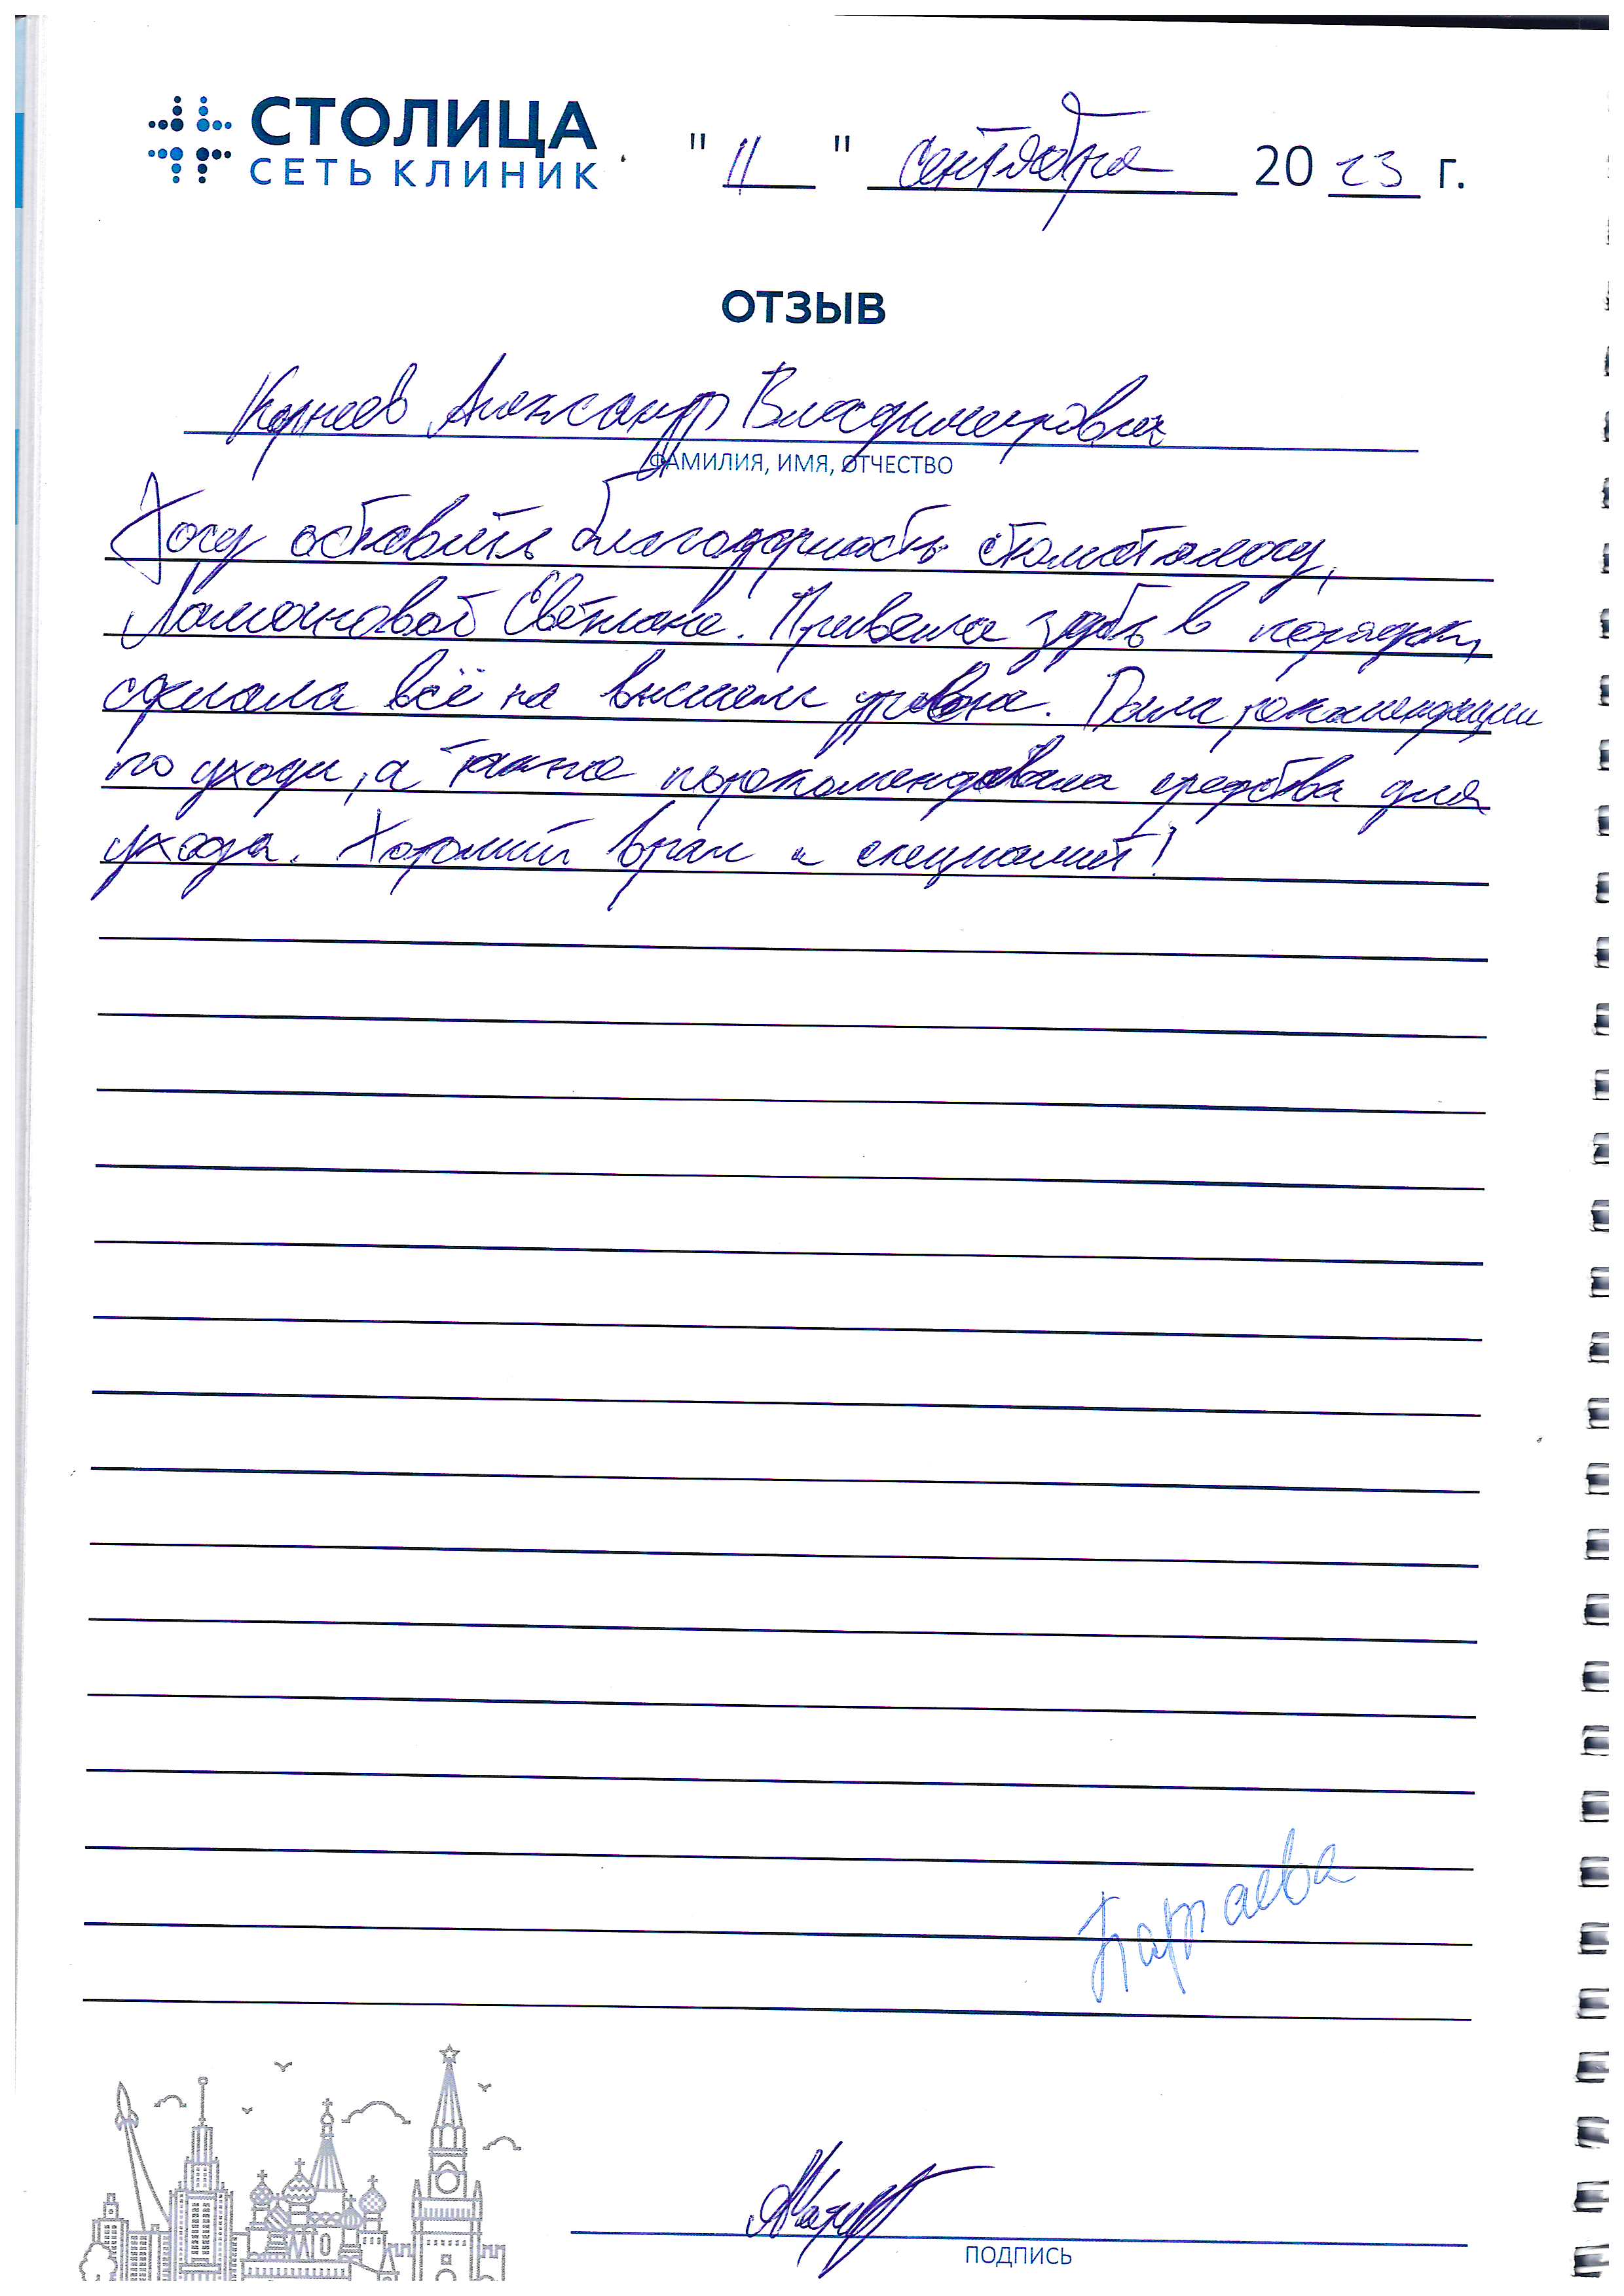 СТОЛИЦА
СЕТЬ КЛИНИК
" 11 " сентября 20 23 г.
ОТЗЫВ
Корнеев Александр Владимирович
ФАМИЛИЯ, ИМЯ, ОТЧЕСТВО
Хочу оставить благодарность стоматологу,
Ломоновой Светлане. Привела зубы в порядок,
сделала всё на высшем уровне. Дала рекомендации
по уходу, а также порекомендовала средства для
ухода. Хороший врач и специалист!
ПОДПИСЬ